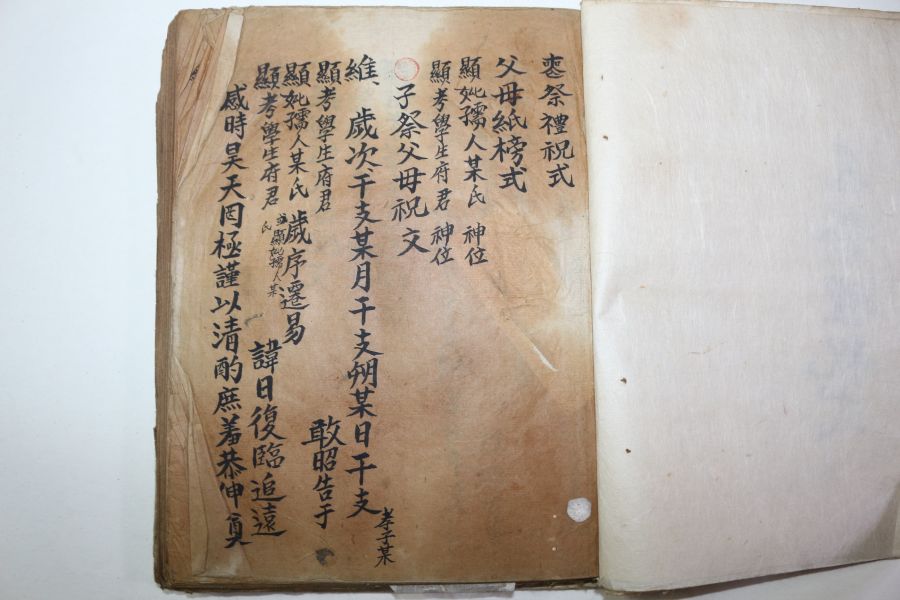 喪祭禮祝式
父母紙榜式
顯妣孺人某氏 神位
顯考學生府君 神位
子祭父母祝文
維 歲次干支某月干支朔某日干支 孝子某
敢昭告于
顯考學生府君
顯妣孺人某氏歲序遷易
顯考學生府君 或顯妣孺人某氏 諱日復臨追遠
感時昊天罔極謹以清酌庶羞恭伸奠